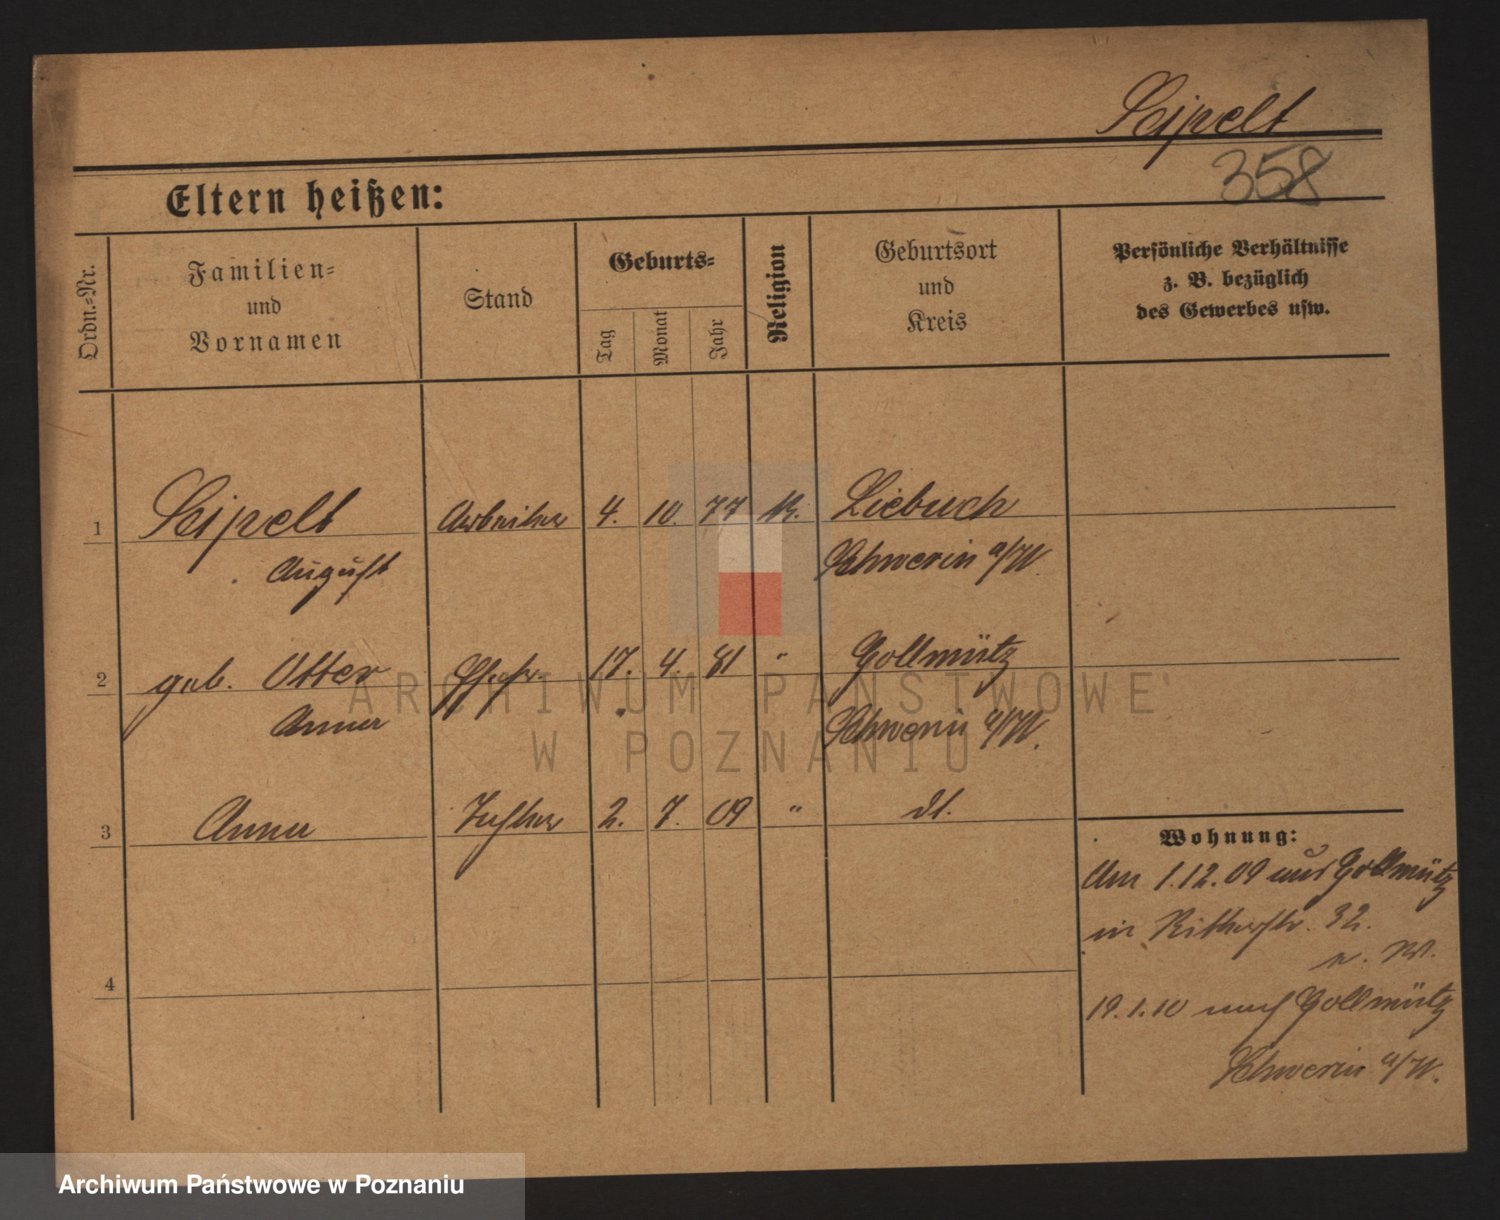 Seipelt
358
Eltern heißen:
Ordn.-Nr.
Familien-
und
Vornamen
Stand
Geburts-
Tag
Monat
Jahr
Religion
Geburtsort
und
Kreis
Persönliche Verhältnisse
z. B. bezüglich
des Gewerbes usw.
1 Seipelt Arbeiter 4. 10. 77 K. Liebuch
August Schwerin a/W.
2 geb. Otter Ehefr. 17. 4. 81 " Gollmütz
Anna Schwerin a/W.
3 Anna Tochter 2. 7. 09 " dt.
4
Wohnung:
Am 1.12.09 aus Gollmütz
in Ritterstr. 32.
n. W.
19.1.10 nach Gollmütz
Schwerin a/W.
ARCHIWUM PAŃSTWOWE
W POZNANIU
Archiwum Państwowe w Poznaniu